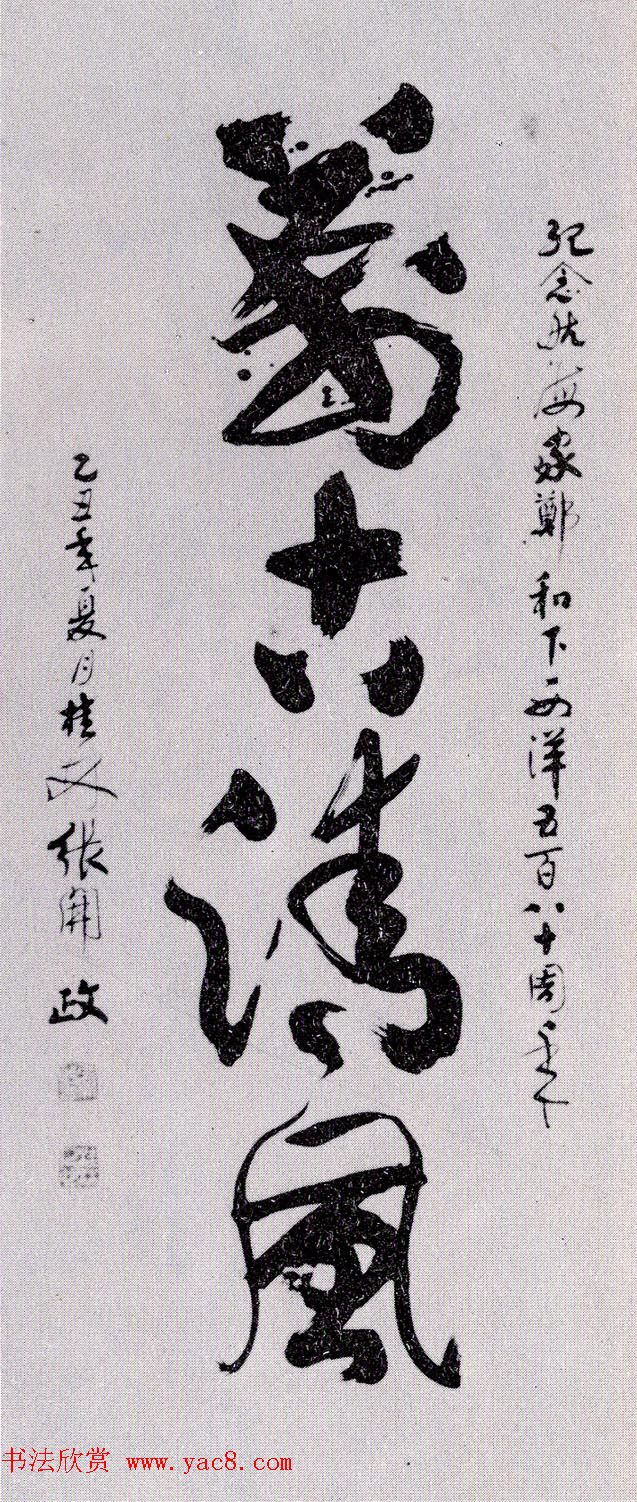 紀念航海家鄭和下西洋五百八十周年
萬古清風
乙丑年夏月桂張開政
书法欣赏 www.yac8.com